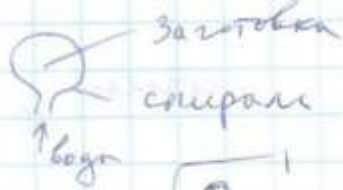 Заготовка
спираль
вода